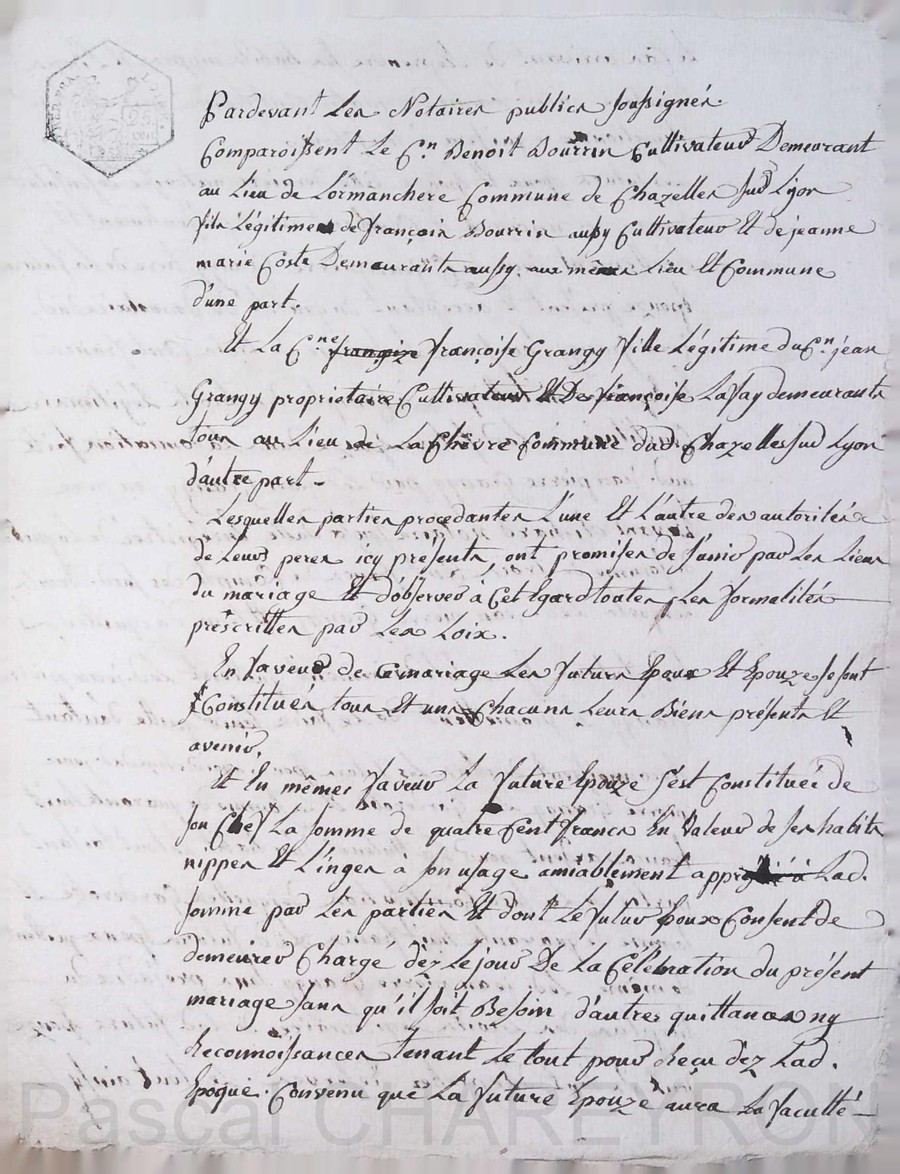 25
cen
Pardevant Les Notaires publics soussignés
Comparoissent Le C.n Benoit Bourrin Cultivateur Demeurant
au Lieu de L'ormanchere Commune de Chazelles sur Lyon
fils Légitime de françois Bourrin aussy Cultivateur Et de jeanne
marie Coste Demeurants aussy aux mêmes Lieu Et Commune
d'une part.
Et La C.ne françoise françoise Grangy fille Légitime du C.n jean
Grangy propriétaire Cultivateur Et De françoise Lafay demeurants
tous au Lieu de La Chèvre Commune dud. Chazelles sur Lyon
d'autre part.
Lesquelles parties procedantes L'une Et L'autre des autorités
de Leurs peres icy présents, ont promises de s'unir par Les Liens
du mariage Et d'observer à Cet Egard toutes Les formalités
prescrittes par Les Loix.
En faveur de ce mariage Les futurs Epoux Et Epouze se sont
Constitués tous Et uns Chacuns Leurs Biens présents Et
avenir,
Et En même faveur La future Epouze s'est Constituée de
son Chef La somme de quatre Cent francs En Valeur de ses habits
nippes Et Linges à son usage amiablement à Lad.
somme par Les parties Et dont Le futur Epoux Consent de
demeurer Chargé dèz Le jour De La Célébration du présent
mariage sans qu'il soit Besoin d'autres quittances ny
Reconnoissances tenant Le tout pour Reçu dèz Lad.
Epoque. Convenu que La future Epouze aura La faculté
Pascal CHAREYRON